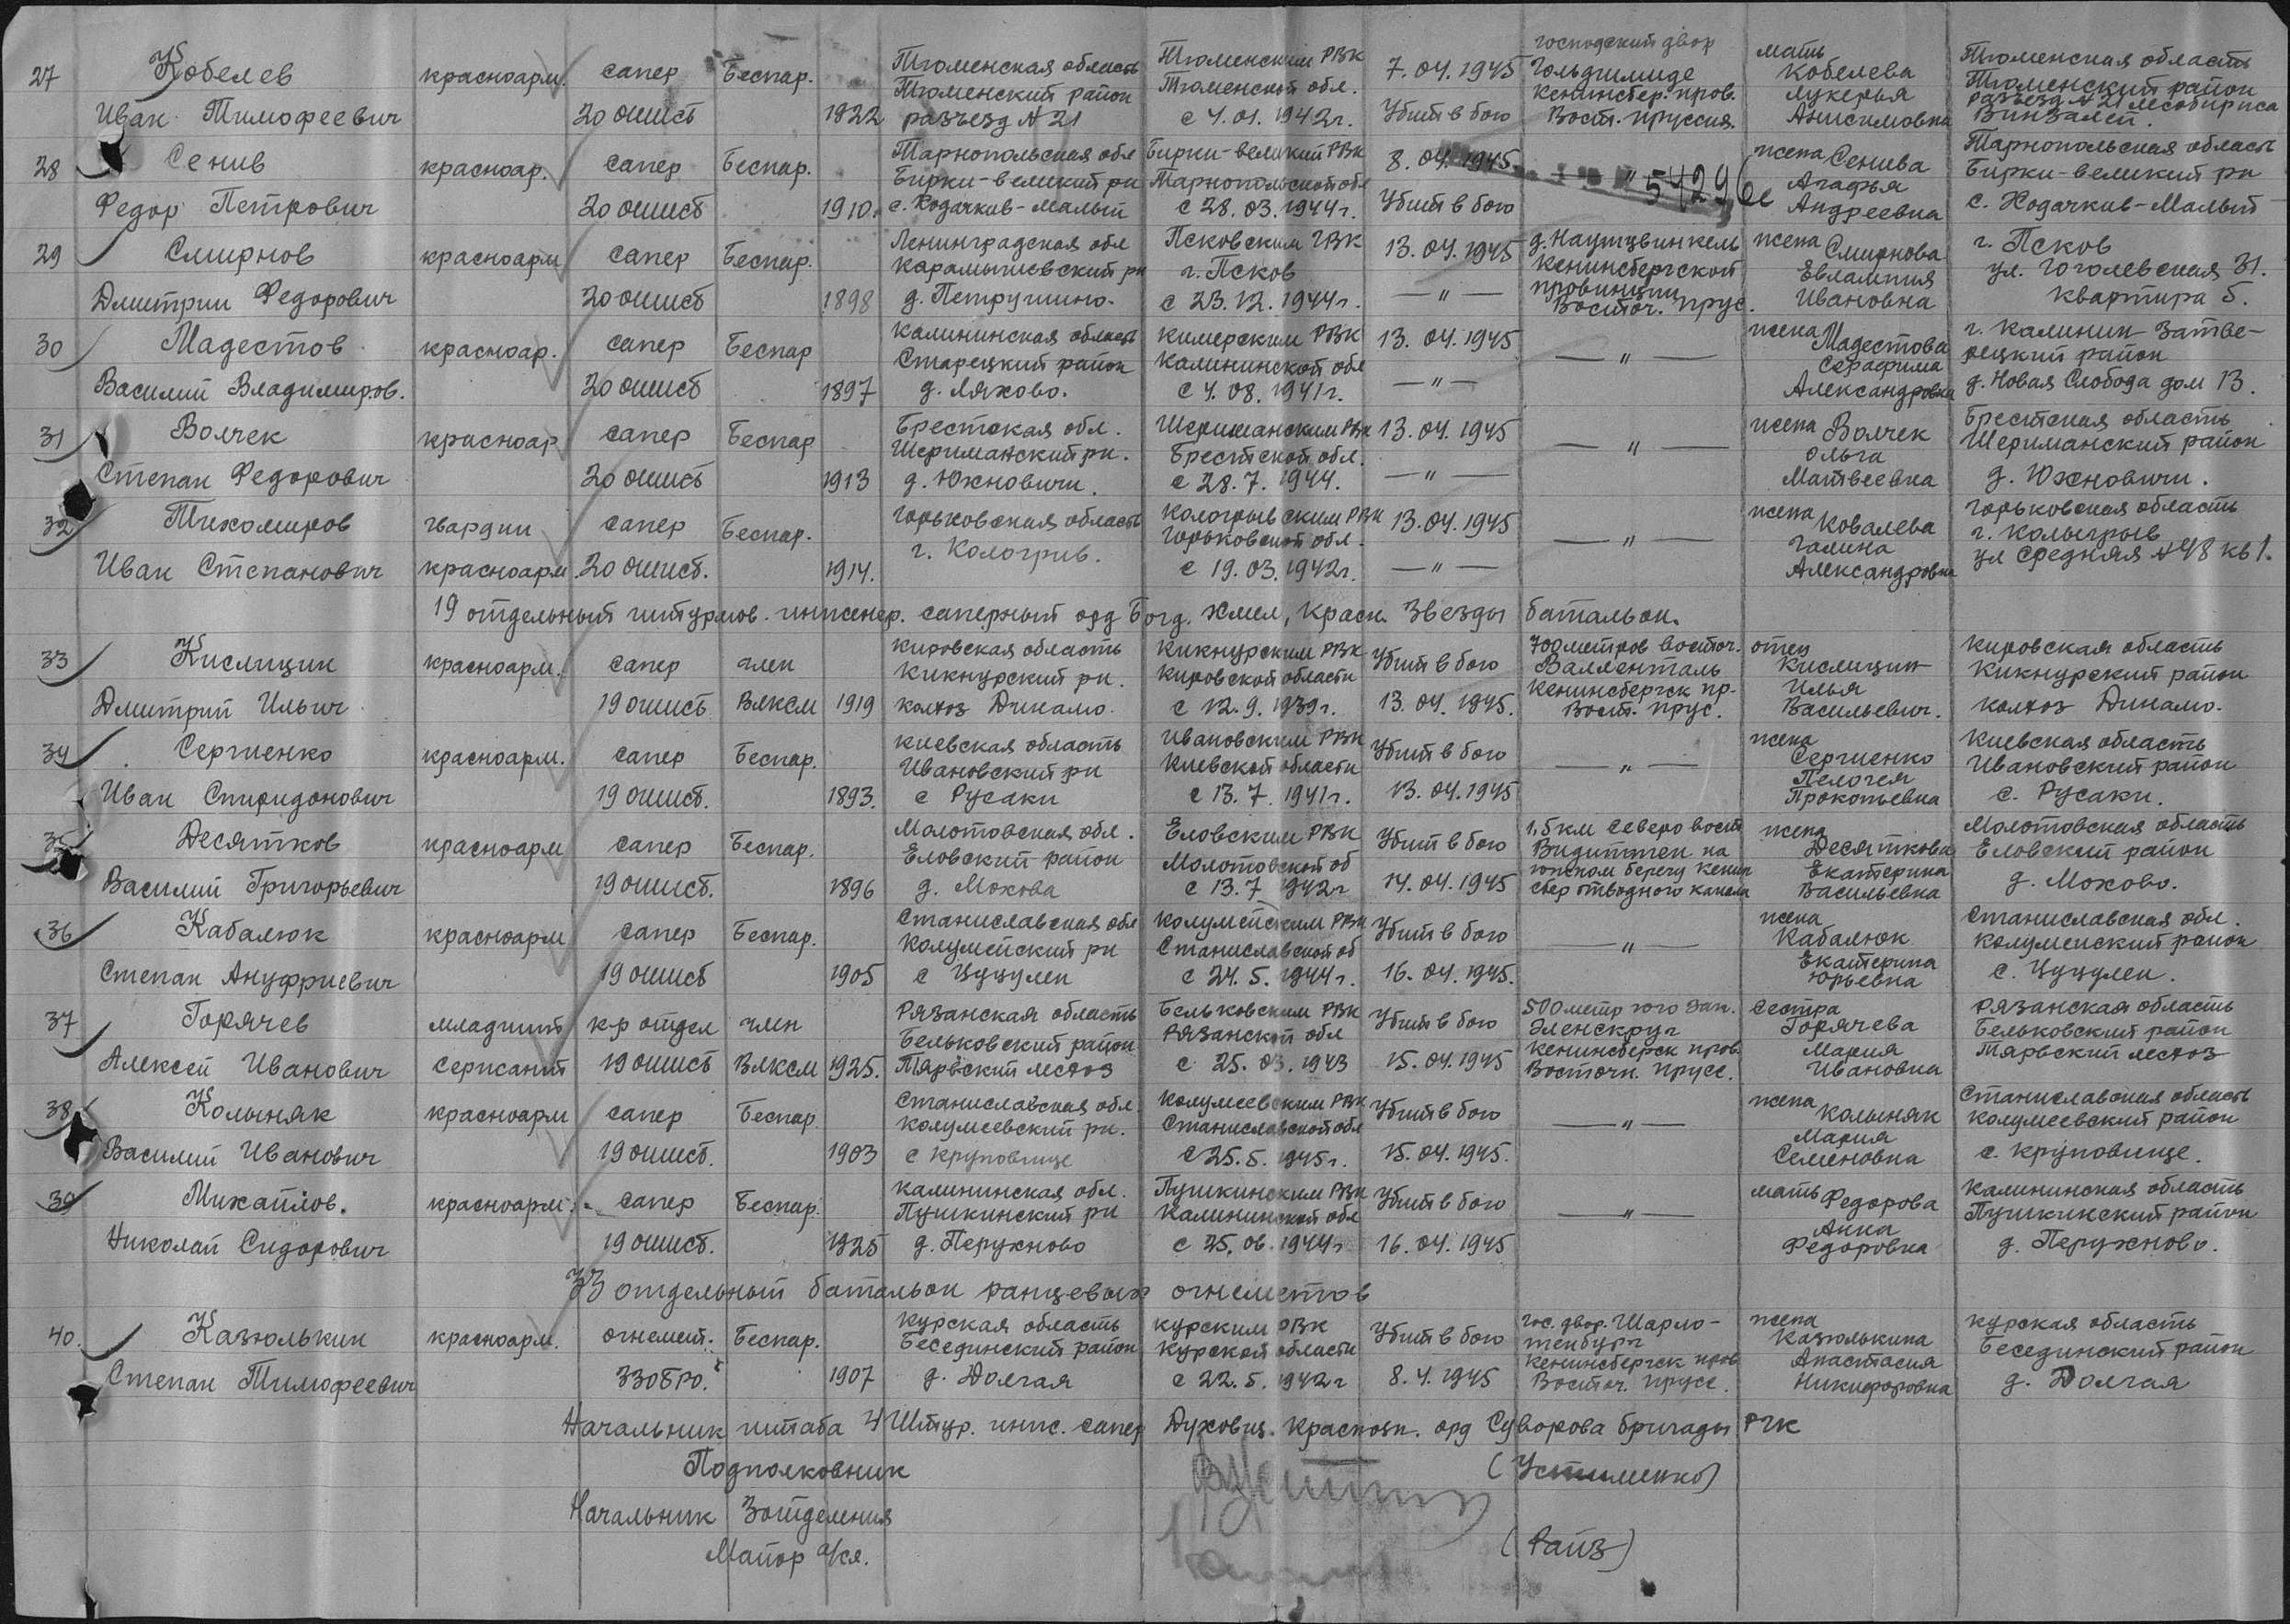 27 Кобелев красноарм. сапер Беспар. Тюменская область Тюменским РВК 7.04.1945 господский двор Гольдшмиде мать Кобелева Тюменская область
Иван Тимофеевич 20 ошисб 1922 Тюменский район разъезд № 21 Тюменской обл. с 4.01.1942г. Убит в бою Кенинсбер. пров. Вост. Пруссия. Лукерья Анисимовна Тюменский район разъезд № 21
28 Сенив красноар. сапер Беспар. Тарнопольская обл Бирки-великий РВК 8.04.1945 — " — 54296с жена Сенива Тарнопольская область
Федор Петрович 20 ошисб 1910. Бирки-великий рн с. Ходачков-малый Тарнопольской обл с 28.03.1944г. Убит в бою Агафья Андреевна Бирки-великий рн с. Ходачков-Малый
29 Смирнов красноарм сапер Беспар. Ленинградская обл Псковским ГВК 13.04.1945 д. Наутцвинкель жена Смирнова г. Псков
Дмитрии Федорович 20 ошисб 1898 Карамышевский рн д. Петрушино. г. Псков с 23.12.1944г. — " — Кенинсбергской провинции Восточ. прус. Евлампия Ивановна ул. Гоголевская 31. квартира 5.
30 Мадестов красноар. сапер Беспар Калининская область Кимерским РВК 13.04.1945 — " — жена Мадестова г. Калинин Затве-
Василий Владимиров. 20 ошисб 1897 Старецкий район д. Ляхово. Калининской обл с 4.08.1941г. — " — Серафима Александровна рецкий район д. Новая Слобода дом 13.
31 Волчек красноар сапер Беспар Брестская обл. Шериманским РВК 13.04.1945 — " — жена Волчек Брестская область
Степан Федорович 20 ошисб 1913 Шериманский рн. д. Южновичи. Брестской обл. с 28.7.1944. — " — Ольга Матвеевна Шериманский район д. Южновичи.
32 Тихомиров гвардии сапер Беспар. Горьковская область Кологрывским РВК 13.04.1945 — " — жена Ковалева Горьковская область
Иван Степанович красноарм. 20 ошисб. 1914. г. Кологрив. Горьковской обл. с 19.03.1942г. — " — Галина Александровна г. Кологрыв ул Средняя № 48 кв 1.
19 отдельный штурмов. инженер. саперный орд Богд. Хмел, Красн. Звезды батальон.
33 Кислицин красноарм. сапер член Кировская область Кикнурским РВК Убит в бою 700 метров восточ. отец Кислицин Кировская область
Дмитрий Ильич 19 ошисб ВЛКСМ 1919 Кикнурский рн. колхоз Динамо. Кировской области с 12.9.1939г. 13.04.1945. Валленталь Кенинсбергск пр. Вост. прус. Илья Васильевич. Кикнурский район колхоз Динамо.
34 Сергиенко красноарм. сапер Беспар. Киевская область Ивановским РВК Убит в бою — " — жена Сергиенко Киевская область
Иван Спиридонович 19 ошисб. 1893. Ивановский рн с Русаки Киевской области с 13.7.1941г. 13.04.1945 Пелогея Прокопьевна Ивановский район с. Русаки.
35 Десятков красноарм сапер Беспар. Молотовская обл. Еловским РВК Убит в бою 1,5 км северо вост жена Десяткова Молотовская область
Василий Григорьевич 19 ошисб. 1896 Еловский район д. Мохова Молотовской об с 13.7.1942г 14.04.1945 Видиттен на южном берегу Кенин сбер отводного канала Екатерина Васильевна Еловский район д. Мохово.
36 Кабалюк красноарм сапер Беспар. Станиславская обл Колумейским РВК Убит в бою — " — жена Кабалюк Станиславская обл.
Степан Ануфриевич 19 ошисб 1905 Колумейский рн с Цуцулен Станиславской об с 24.5.1944г. 16.04.1945. Екатерина Юрьевна Колумейский район с. Цуцулен.
37 Горячев младший к-р отдел член Рязанская область Бельковским РВК Убит в бою 500 метр юго зап. сестра Горячева Рязанская область
Алексей Иванович сержант 19 ошисб ВЛКСМ 1925. Бельковский район Тярвский лесхоз Рязанской обл с 25.03.1943 15.04.1945 Эленскруг Кенинсберск пров. Восточн. Прусс. Мария Ивановна Бельковский район Тярвский лесхоз
38 Колыняк красноарм сапер Беспар. Станиславская обл. Колумеевским РВК Убит в бою — " — жена Колыняк Станиславская область
Василий Иванович 19 ошисб. 1903 Колумеевский рн. с Круповище Станиславской обл с 25.5.1945г. 15.04.1945. Мария Семеновна Колумеевский район с. Круповище.
39 Михайлов. красноарм. сапер Беспар. Калининская обл. Пушкинским РВК Убит в бою — " — мать Федорова Калининская область
Николай Сидорович 19 ошисб. 1925 Пушкинский рн д. Перужново Калининской обл с 25.06.1944г 16.04.1945 Анна Федоровна Пушкинский район д. Перужново.
33 отдельный батальон ранцевых огнеметов
40. Казюлькин красноарм. огнемет. Беспар. Курская область Курским РВК Убит в бою гос. двор. Шарло- жена Казюлькина Курская область
Степан Тимофеевич 33 обро. 1907 Бесединский район д. Долгая Курской области с 22.5.1942г 8.4.1945 тенбург Кенинсбергск пров Восточ. Прусс. Анастасия Никифоровна Бесединский район д. Долгая
Начальник штаба 4 Штур. инж. сапер Духовщ. Краснозн. орд Суворова бригады РГК
Подполковник (Устименко)
Начальник 3 отделения
Майор а/сл. (Райз)